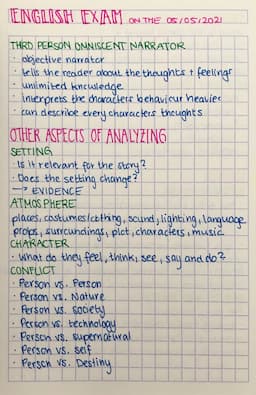 ENGLISH EXAM ON THE 05/05/2021
THIRD PERSON OMNISCENT NARRATOR
· objective narrator
· tells the reader about the thoughts + feelings
· unlimited knowledge
· interprets the characters behaviour heavier
· can describe every characters thoughts
OTHER ASPECTS OF ANALYZING
SETTING
· Is it relevant for the story?
· Does the setting change?
→ EVIDENCE
ATMOSPHERE
places, costumes/clothing, sound, lighting, language
props, surroundings, plot, characters, music
CHARACTER
· What do they feel, think, see, say and do?
CONFLICT
· Person vs. Person
· Person vs. Nature
· Person vs. society
· Person vs. technology
· Person vs. supernatural
· Person vs. self
· Person vs. Destiny